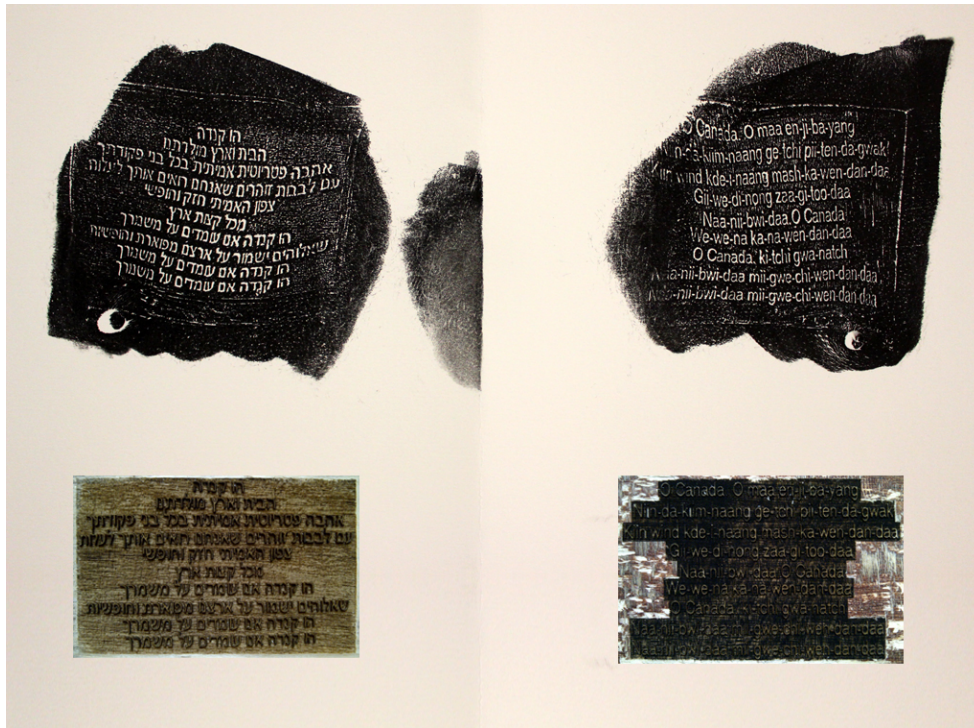 הו קנדה
הבית וארץ מולדתנו
אהבה פטריוטית אמיתית בכל בני פקודתיך
עם לבבות זוהרים שאנחם רואים אותך לעלות
צפון האמיתי חזק וחופשי
מכל קצות ארץ
הו קנדה אם עומדים על משמרך
שאלוהים ישמור על ארצם מפוארת וחופשיות
הו קנדה אם עומדים על משמרך
הו קנדה אם עומדים על משמרך
O Canada. O maa en-ji-ba-yang
n-da-kiim-naang ge-tchi pii-ten-da-gwak
Kiin wind kde-i-naang mash-ka-wen-dan-daa
Gii-we-di-nong zaa-gi-too-daa
Naa-nii-bwi-daa.O Canada
We-we-na ka-na-wen-dan-daa
O Canada. ki-tchi gwa-natch
Naa-nii-bwi-daa mii-gwe-chi-wen-dan-daa
Naa-nii-bwi-daa mii-gwe-chi-wen-dan-daa
הו קנדה
הבית וארץ מולדתנו
אהבה פטריוטית אמיתית בכל בני פקודתיך
עם לבבות זוהרים שאנחם רואים אותך לעלות
צפון האמיתי חזק וחופשי
מכל קצות ארץ
הו קנדה אם עומדים על משמרך
שאלוהים ישמור על ארצם מפוארת וחופשיות
הו קנדה אם עומדים על משמרך
הו קנדה אם עומדים על משמרך
O Canada. O maa en-ji-ba-yang
Niin-da-kiim-naang ge-tchi pii-ten-da-gwak
Kiin wind kde-i-naang mash-ka-wen-dan-daa
Gii-we-di-nong zaa-gi-too-daa
Naa-nii-bwi-daa.O Canada
We-we-na ka-na-wen-dan-daa
O Canada. ki-tchi gwa-natch
Naa-nii-bwi-daa mii-gwe-chi-wen-dan-daa
Naa-nii-bwi-daa mii-gwe-chi-wen-dan-daa